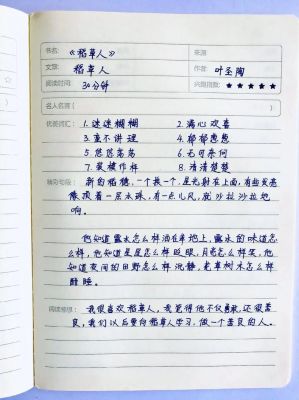 书名: 《稻草人》 来源:
文章: 稻草人 作者: 叶圣陶
阅读时间: 30分钟 兴趣指数: ★★★★★
名人名言( )
优美词汇: 1. 迷迷糊糊 2. 满心欢喜
3. 蛮不讲理 4. 郁郁葱葱
5. 悠悠荡荡 6. 无可奈何
7. 装模作样 8. 清清楚楚
精彩句段: 新的稻穗,一个挨一个,星光射在上面,有些发亮,
像顶着一层水珠,有一点儿风,就沙拉沙拉地
响。
他知道露水怎么样洒在草地上,露水的味道怎么
样,他知道星星怎么样眨眼,月亮怎么样笑,他
知道夜间的田野怎么样沉静,花草树木怎么样
酣睡。
阅读感想: 我很喜欢稻草人,我觉得他不仅勇敢,还很善
良,我们以后要向稻草人学习,做一个善良的人。